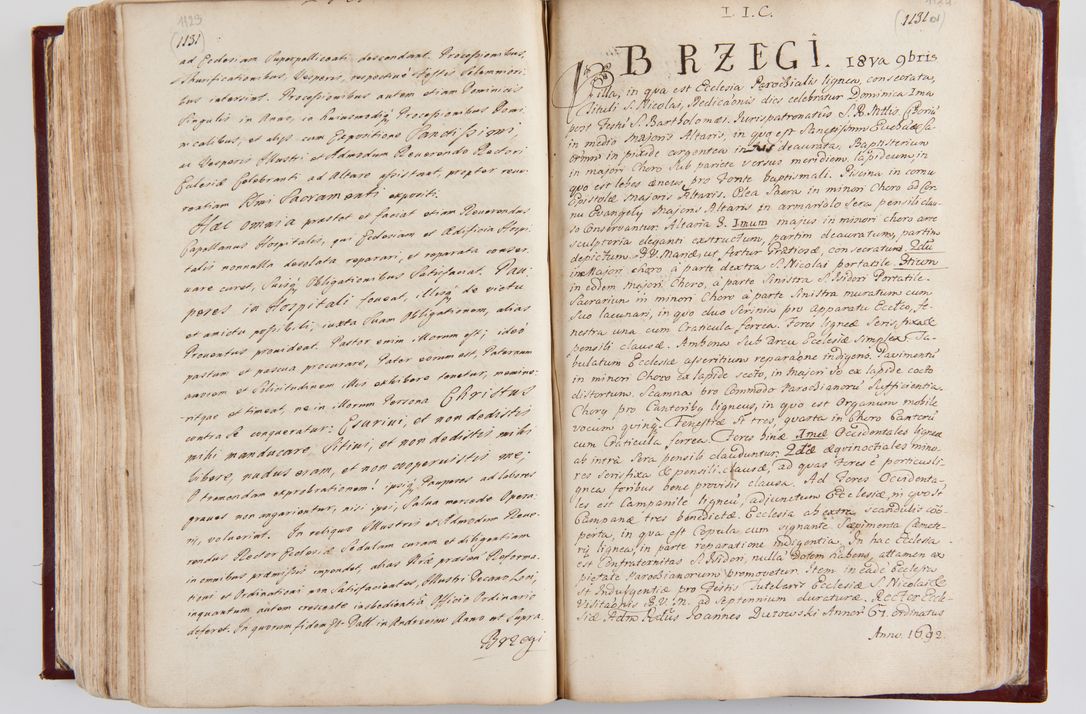 1123
(1131)
ad Ecclesiam Superpelliceati descendant. Processionibus,
Thurificationibus, Vesperis, respective Festis Solenniori
bus intersint. Processionibus autem etiam Dominicis
Singulis in Anno, in huiusmodi Processionibus Domi
nicalibus, et aliis cum Expositione Sanctissimi,
ac Vesperis Illustri et Admodum Reverendo Rectori
Ecclesiæ Celebranti ad Altare assistant, propter reve
rentiam Smi Sacramenti expositi.
Hæc omnia præstet et faciat etiam Reverendus
Capellanus Hospitalis, qui Ecclesiam et Ædificia Hospi
talis nonnulla desolata reparari, et reparata conser
vare curet, Suisq Obligationibus Satisfaciat. Pau
peres in Hospitali foveat, illisq de victu
et amictu possibili, iuxta Suam Obligationem, alias
Proventus provideat. Pastor enim illorum est; ideo
pastum et pascua procurare, Pater eorum est, Paternam
amorem et Solicitudinem illis exhibere tenetur, memine
ritque et timeat, ne in illorum Persona Christus
contra Se conqueratur: Esurivi, et non dedistis
mihi manducare, Sitivi, et non dedistis mihi
bibere, nudus eram, et non cooperuistis me;
O tremendam exprobrationem! ipsiq Pauperes ad labores
graves non angarientur, nisi ipsi, Salva mercede Opera
ri, voluerint. In reliquo Illustris et Admodum Reve
rendus Rector Ecclesiæ Sedulam curam et diligentiam
in omnibus præmissis impendet, alias Hæ præsenti Reforma
tioni et Ordinationi non Satisfacientes, Illustri Decano Loci,
inquantum autem crescente inobedientia Officio Ordinario
deferet. In quorum fidem Ptt Datt in Andreiow Anno ut Supra
Brzegi
1122
(1131 01)
I. I. C.
BRZEGI. 18va 9bris
Villa, in qua est Ecclesia Parochialis lignea, consecrata,
Tituli S. Nicolai, Dedicaonis dies celebratur Dominica Ima
post Festũ S. Bartholomæi. Jurispatronatûs S. R. Mttis. Cboriũ
in medio Majoris Altaris, in quo est Sanctissimũ Euchæ Sa
crmũ in pixide argentea intus deaurata. Baptisterium
in majori Choro Sub pariete versus meridiem lapideum in
quo est lebes æneus pro Fonte baptismali. Piscina in cornu
Epistolæ Majoris Altaris. Olea Sacra in minori Choro ad Cor
nu Evangelÿ Majoris Altaris in armariolo Sera pensili clau
so Conservantur. Altaria 3. Imum majus in minori choro arte
sculptoria eleganti exstructum, partim deauratum, partim
depictum B.V. Mariæ, ut fertur Gratiosæ, consecratum. 2dũ
in Majori choro, à parte dextra S. Nicolai portatile. 3tium
in eodem majori Choro, à parte Sinistra S. Isidori Portatile.
Sacrarium in minori Choro à parte Sinistra muratum cum
Suo lacunari, in quo duo Scrinia pro Apparatu Ecclco, Fe
nestra una cum Craticula ferrea. Fores ligneæ Seris, fixa &
pensili clausæ. Ambona Sub arcu Ecclesiæ Simplex. Ta
bulatum Ecclesiæ asseritium reparaone indigens. Pavimentũ
in minori Choro ex lapide secto, in majori vo ex lapide cocto
distortum. Scamna pro Commodo Parochianorũ Sufficientia.
Chory pro Cantoriby ligneus, in quo est Organum mobile
vocum quinq. Fenestræ 4 tres, quarta in Choro Cantorũ
cum Craticula ferrea. Fores binæ Imæ Occidentales ligneæ
ab intra Sera pensili clauduntur. 2dæ æquinoctiales mino
res Seris fixa & pensili clausæ, ad quas Fores ẽ porticus li
gnea foribus bene provisis clausa. Ad Fores Occidenta
les est Campanile ligneũ, adjunctum Ecclesiæ, in quo st
Campanæ tres benedictæ. Ecclesia ab extra scandulis coo
perta, in qua est Copula cum signante. Sæpimenta Cæmete
rij lignea, in parte reparatione indigentia. In hac Ecclesia
est Confraternitas S. Isidori, nulla Dotem habens, attamen ex
pietate Parochianorum promovetur. Item in eadẽ Ecclesia
st Indulgentiæ pro Festis Tutelaris Ecclesiæ S. Nicolai &
Visitaõnis B.V.M. ad Septennium duraturæ. Rector Eccle
siæ Admo Rndus Joannes Durowski Annor 67. Ordinatus
Anno 1692